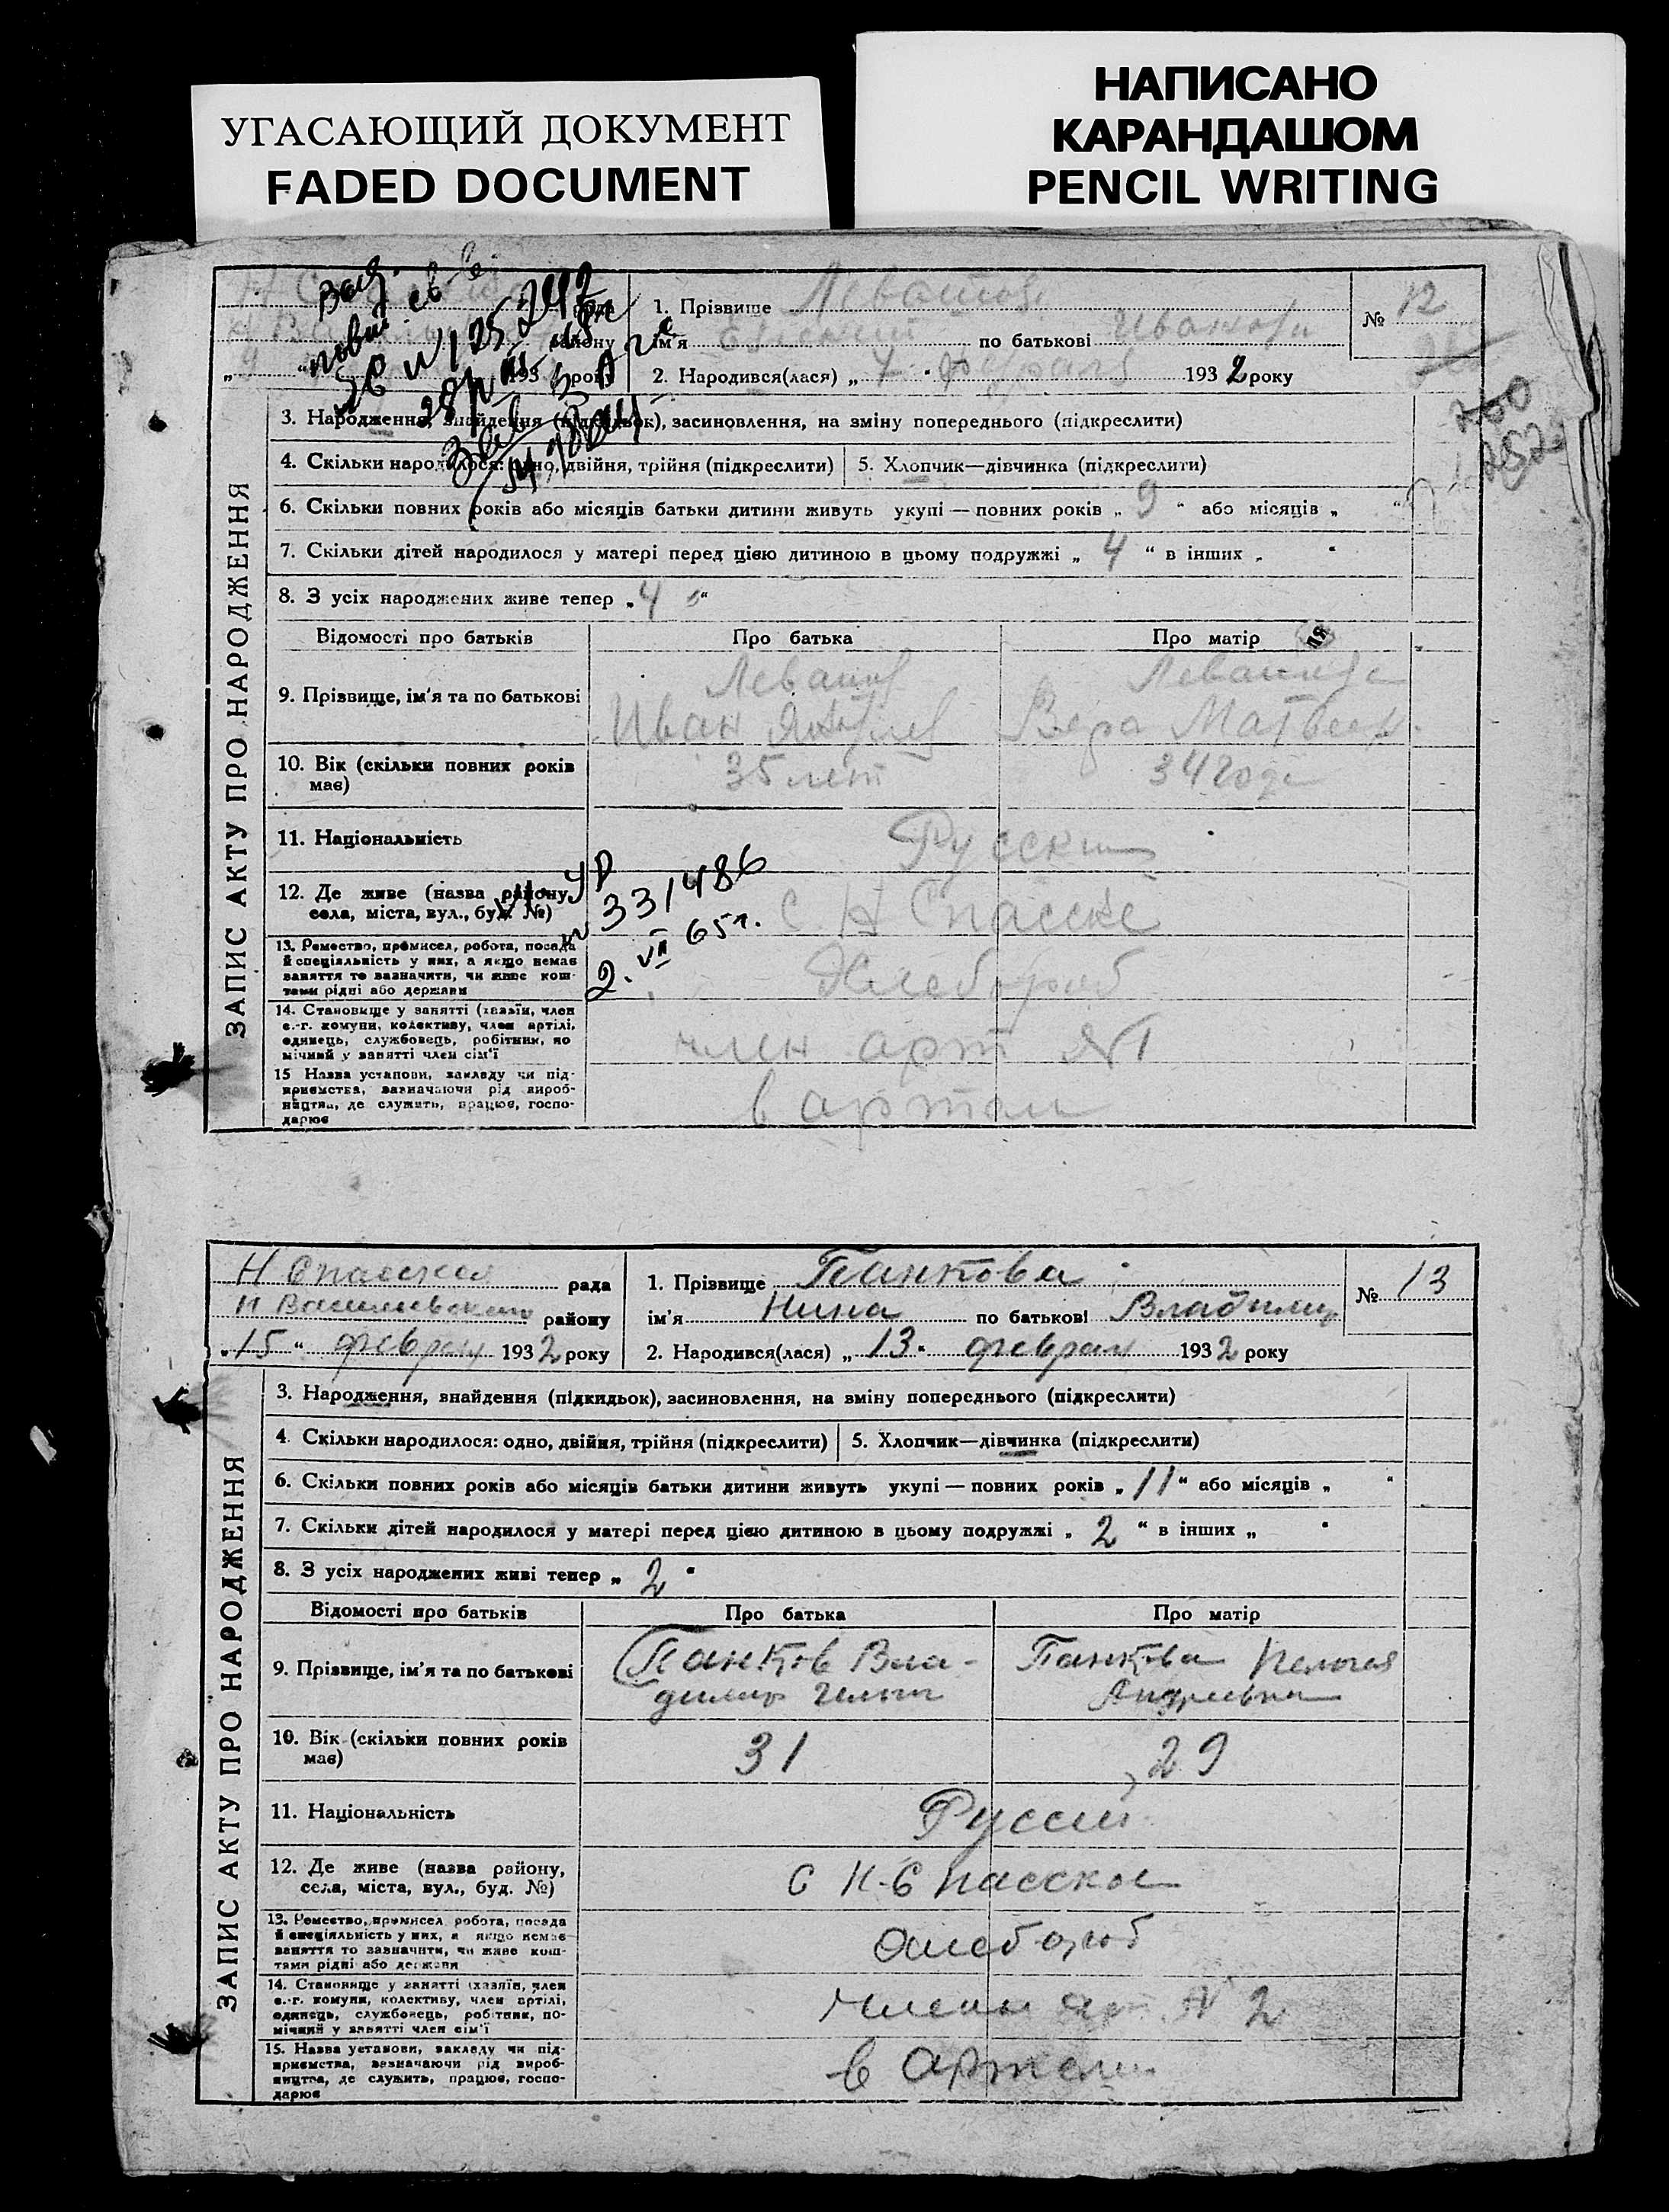 УГАСАЮЩИЙ ДОКУМЕНТ
FADED DOCUMENT
НАПИСАНО
КАРАНДАШОМ
PENCIL WRITING
рада
району
„ 9 “ 193 року
1. Прізвище Левашов
ім'я по батькові Иванович
2. Народився(лася) „ 7 “ февраля 1932 року
№ 12
252
3. Народження, знайдення (підкидьок), засиновлення, на зміну попереднього (підкреслити)
4. Скільки народилося: одно, двійня, трійня (підкреслити)
5. Хлопчик—дівчинка (підкреслити)
6. Скільки повних років або місяців батьки дитини живуть укупі — повних років „ 9 “ або місяців „ “
7. Скільки дітей народилося у матері перед цією дитиною в цьому подружжі „ 4 “ в інших „ “
8. З усіх народжених живе тепер „ 4 “
ЗАПИС АКТУ ПРО НАРОДЖЕННЯ
Відомості про батьків
Про батька
Про матір
9. Прізвище, ім'я та по батькові
Левашов
Иван
Левашова
Вера Матвеев.
10. Вік (скільки повних років має)
35 лет
34 года
11. Національність
Русские
12. Де живе (назва району, села, міста, вул., буд. №)
С Н Спасске
УР
331486
2. VII 65 г.
13. Ремество, промисел, робота, посада
й спеціяльність у них, а якщо немає
заняття то зазначити, чи живе кош-
тами рідні або держави
Хлебороб
14. Становище у занятті (хазяїн, член
с.-г. комуни, колективу, член артілі,
одинець, службовець, робітник, по
мічний у занятті член сім'ї
член арт №1
15 Назва установи, закладу чи під-
приємства, зазначаючи рід вироб-
ництва, де служить, працює, госпо-
дарює
в артели
Н Спасская рада
Н Василевского району
„ 15 “ феврал 1932 року
1. Прізвище Панкова
ім'я Нина по батькові Владимир
2. Народився(лася) „ 13 “ феврал 1932 року
№ 13
3. Народження, внайдення (підкидьок), засиновлення, на зміну попереднього (підкреслити)
4. Скільки народилося: одно, двійня, трійня (підкреслити)
5. Хлопчик—дівчинка (підкреслити)
6. Скільки повних років або місяців батьки дитини живуть укупі — повних років „ 11 “ або місяців „ “
7. Скільки дітей народилося у матері перед цією дитиною в цьому подружжі „ 2 “ в інших „ “
8. З усіх народжених живі тепер „ 2 “
ЗАПИС АКТУ ПРО НАРОДЖЕННЯ
Відомості про батьків
Про батька
Про матір
9. Прізвище, ім'я та по батькові
Панков Вла-
димир
Панкова Пелогея
Андреевна
10. Вік (скільки повних років має)
31
29
11. Національність
Русский
12. Де живе (назва району, села, міста, вул., буд. №)
С Н-Спасское
13. Ремество, промисел робота, посада
й спеціяльність у них, а якщо немає
заняття то зазначити, чи живе кош-
тами рідні або держави
Хлебороб
14. Становище у занятті (хазяїн, член
с.-г. комуни, колективу, член артілі,
одинець, службовець, робітник, по-
мічний у занятті член сім'ї
Члены ар. № 2
15. Назва установи, закладу чи під-
приємства, зазначаючи рід вироб-
ництва, де служить, працює, госпо-
дарює
в Артели